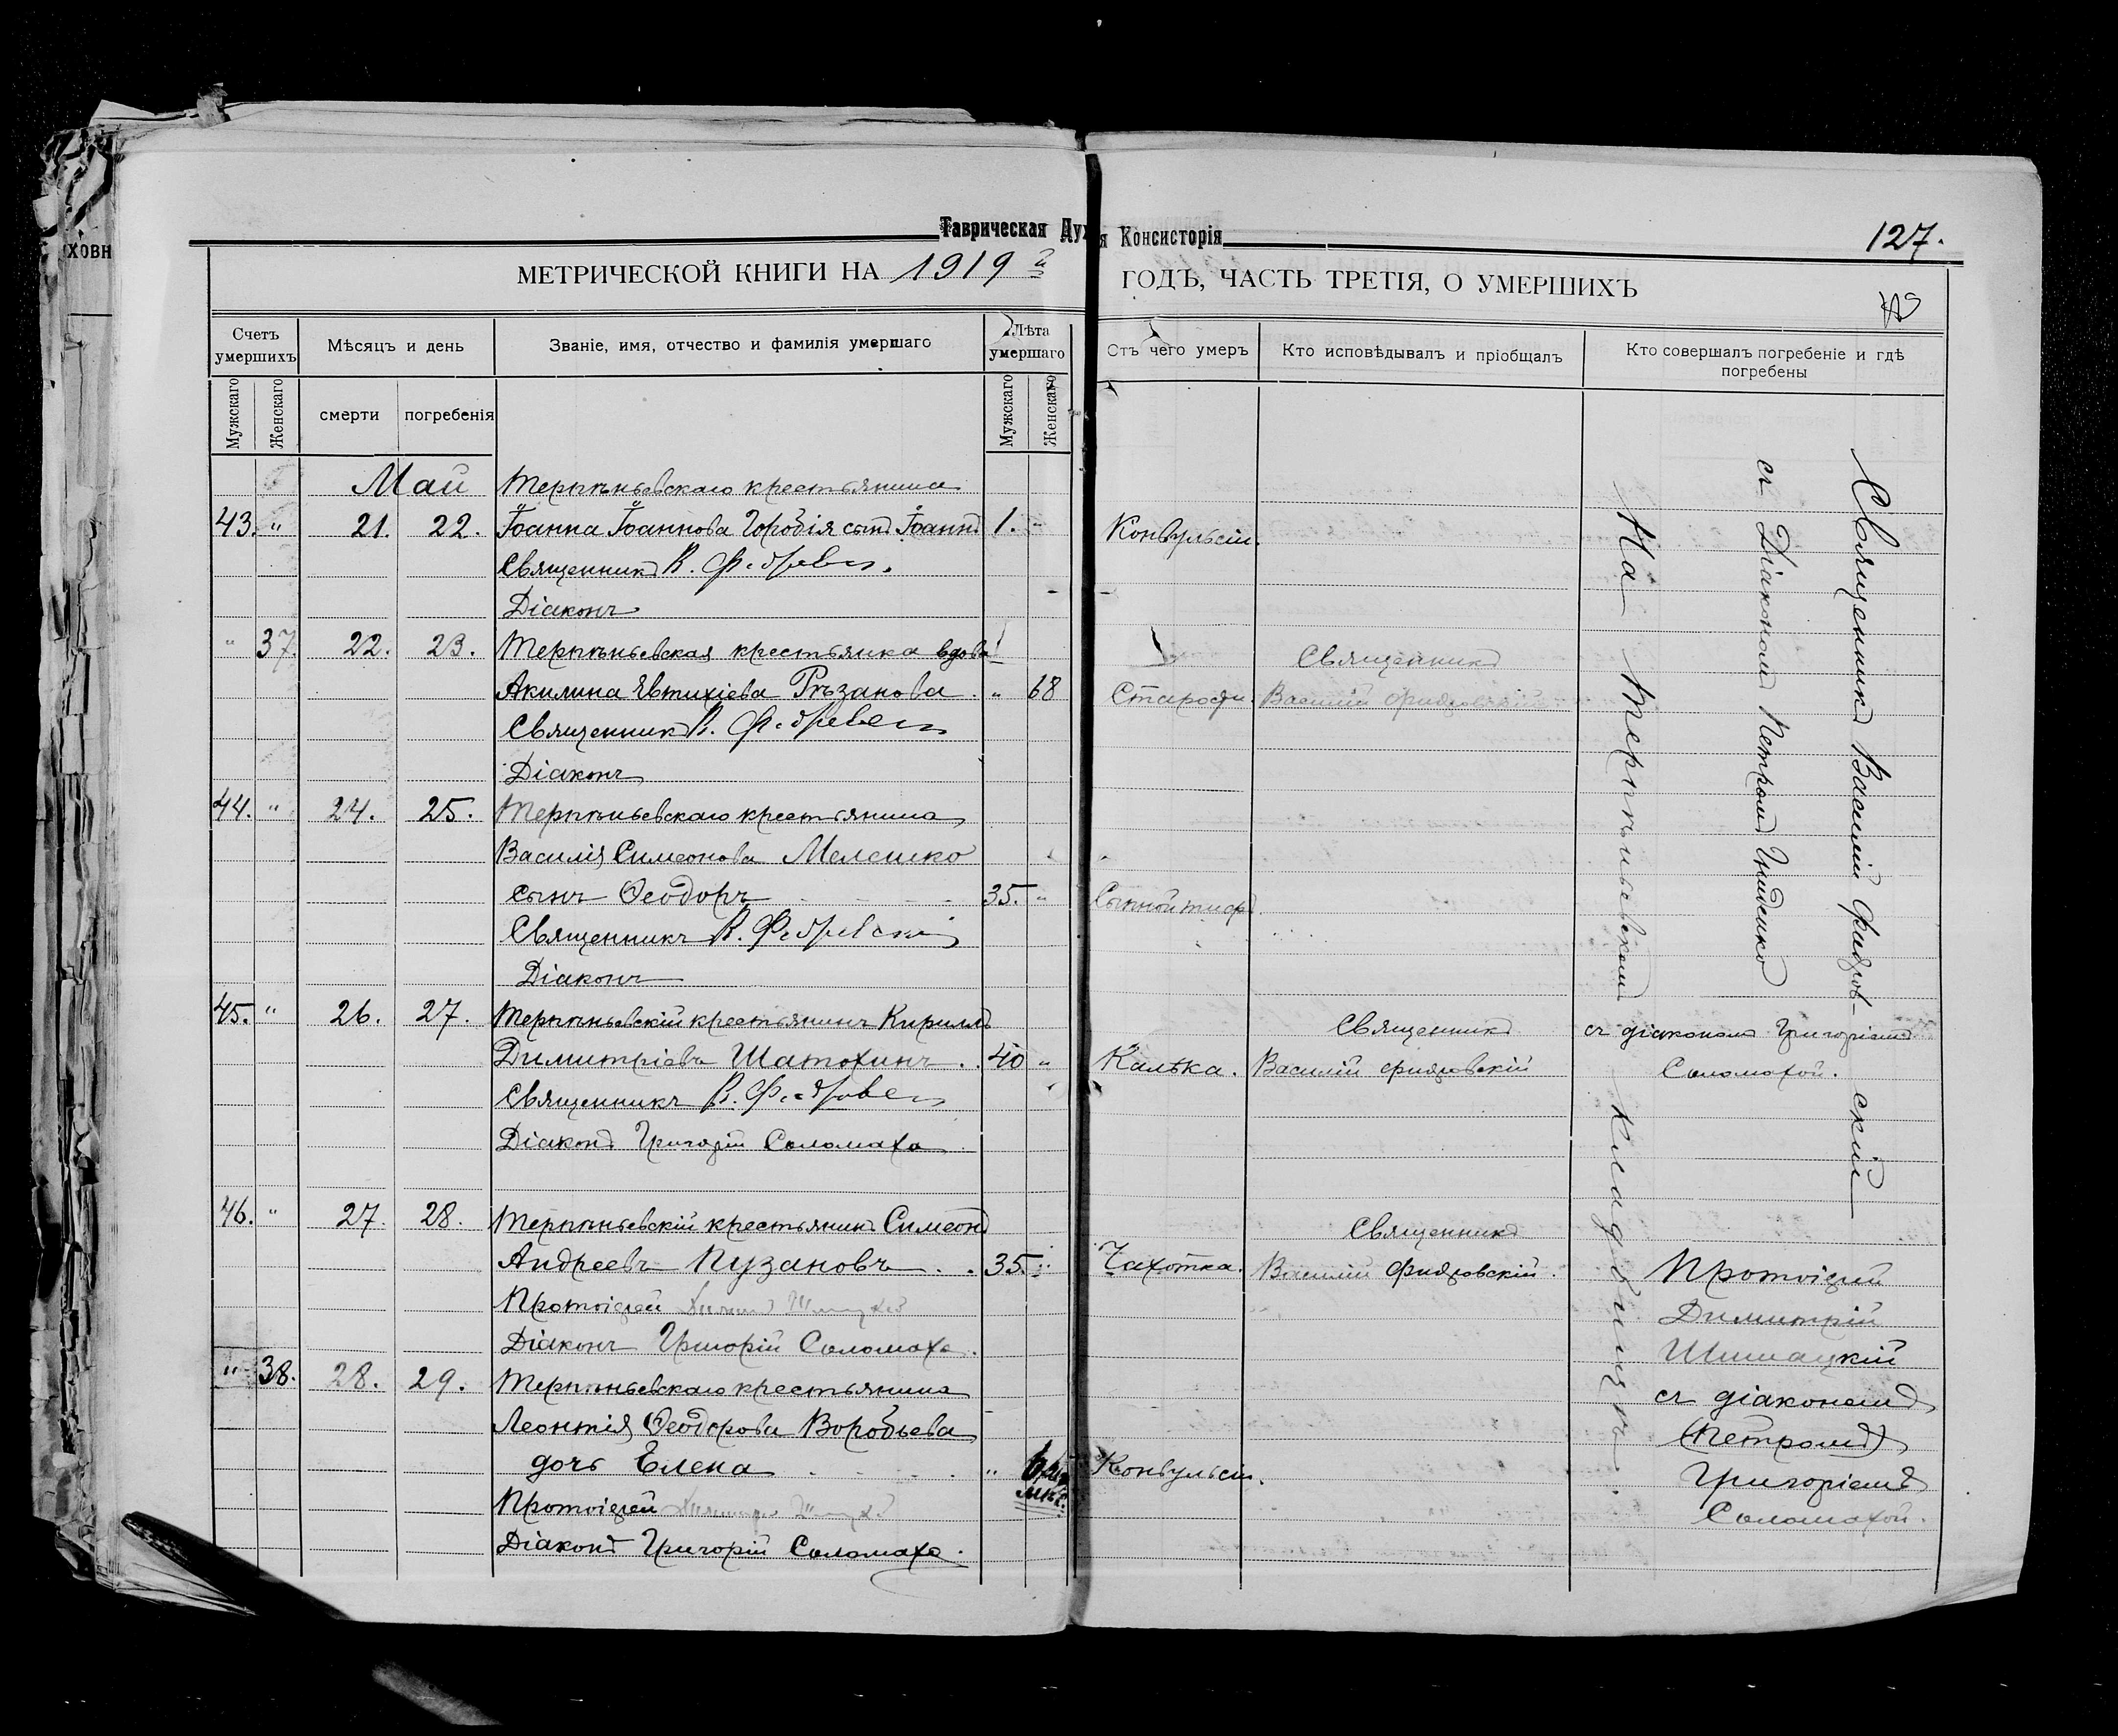 ховн
Таврическая Дух
я Консисторія
127.
МЕТРИЧЕСКОЙ КНИГИ НА 1919 й
ГОДЪ, ЧАСТЬ ТРЕТІЯ, О УМЕРШИХЪ
Счетъ умершихъ
Мѣсяцъ и день
Званіе, имя, отчество и фамилія умершаго
Лѣта умершаго
Отъ чего умеръ
Кто исповѣдывалъ и пріобщалъ
Кто совершалъ погребеніе и гдѣ погребены
Мужскаго
Женскаго
смерти
погребенія
Мужскаго
Женскаго
Май Терпѣньевскаго крестьянина
43. " 21. 22. Іоанна Іоаннова сынъ Іоаннъ 1. " Конвульсіи.
Священникъ В.
Діаконъ
" 37. 22. 23. Терпѣньевская крестьянка вдова Священникъ
Акилина Евтихіева Рѣзанова " 68 Старости. Василій
Священникъ В.
Діаконъ
44. " 24. 25. Терпѣньевскаго крестьянина
Василія Симеонова
сынъ Ѳеодоръ 35. " Сыпной тифъ.
Священникъ В.
Діаконъ
45. " 26. 27. Терпѣньевскій крестьянинъ Кириллъ Священникъ съ діакономъ Григоріемъ
Димитріевъ Шатохинъ . . 40 " Василій Соломахой.
Священникъ В.
Діаконъ Григорій Соломаха
46. " 27. 28. Терпѣньевскій крестьянинъ Симеонъ Священникъ
Андреевъ Пузановъ . . 35. " Чахотка. Василій Протоіерей
Протоіерей Димитрій
Діаконъ Григорій Соломаха.
" 38. 28. 29. Терпѣньевскаго крестьянина съ діакономъ
Леонтія Ѳеодорова Воробьева (Петромъ)
дочь Елена " мѣс. Конвульсіи. Григоріемъ
Протоіерей Соломахой.
Діаконъ Григорій Соломаха.
Священникъ Василій
съ Діакономъ Петромъ
На Терпѣньевскомъ кладбищѣ.